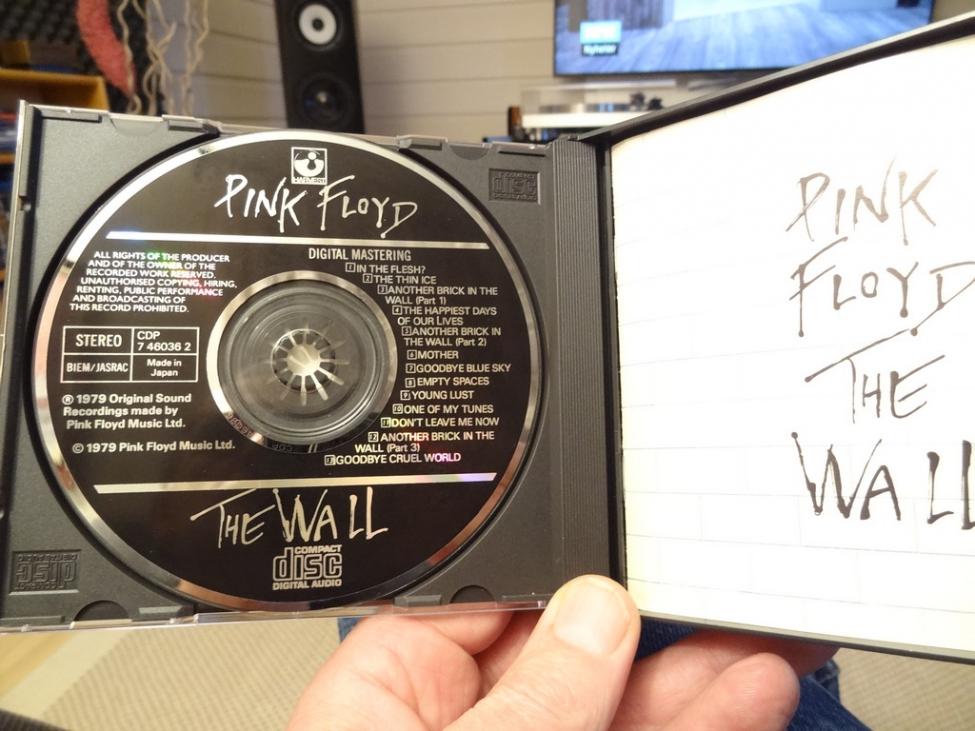 HARVEST
PINK FLOYD
ALL RIGHTS OF THE PRODUCER
AND OF THE OWNER OF THE
RECORDED WORK RESERVED.
UNAUTHORISED COPYING, HIRING,
RENTING, PUBLIC PERFORMANCE
AND BROADCASTING OF
THIS RECORD PROHIBITED.
STEREO
CDP
7 46036 2
BIEM/JASRAC
Made in
Japan
℗ 1979 Original Sound
Recordings made by
Pink Floyd Music Ltd.
© 1979 Pink Floyd Music Ltd.
DIGITAL MASTERING
1 IN THE FLESH?
2 THE THIN ICE
3 ANOTHER BRICK IN THE
WALL (Part 1)
4 THE HAPPIEST DAYS
OF OUR LIVES
5 ANOTHER BRICK IN
THE WALL (Part 2)
6 MOTHER
7 GOODBYE BLUE SKY
8 EMPTY SPACES
9 YOUNG LUST
10 ONE OF MY TUNES
11 DON'T LEAVE ME NOW
12 ANOTHER BRICK IN THE
WALL (Part 3)
13 GOODBYE CRUEL WORLD
THE WALL
COMPACT
disc
DIGITAL AUDIO
COMPACT
disc
disc
PINK
FLOYD
THE
WALL
Nyheter